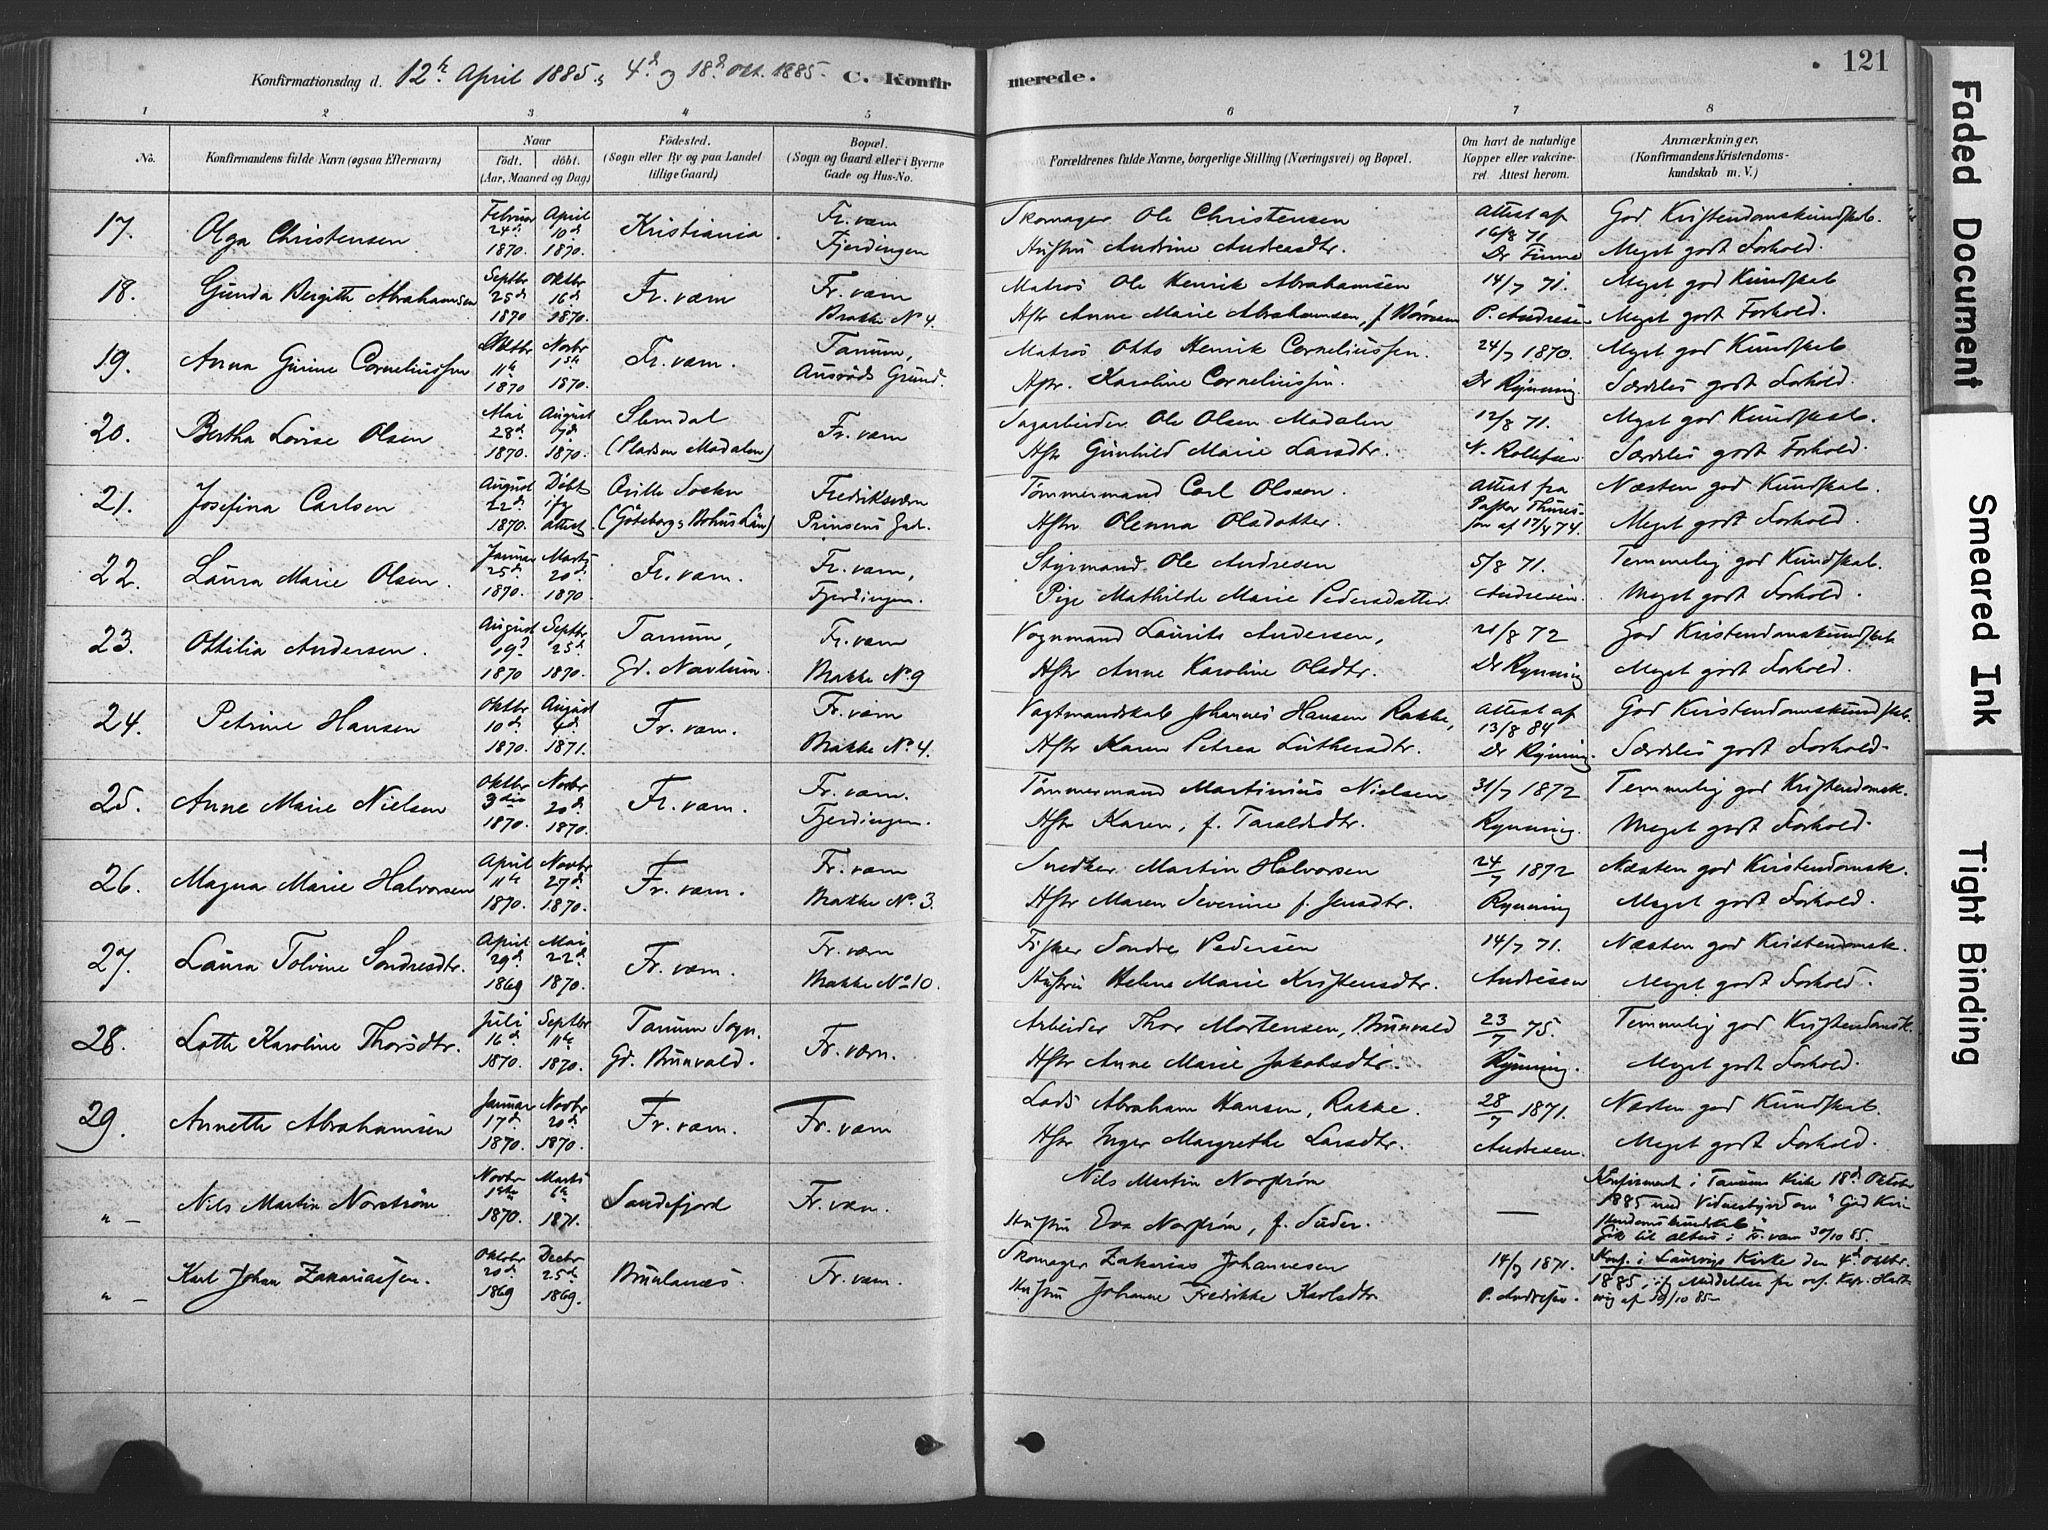 Konfirmationsdag d. 12te April 1885, 4d og 18d Okt. 1885. C. Konfirmerede. 121
1 2 3 4 5 6 7 8
No. Konfirmandens fulde Navn (ogsaa Efternavn) Naar födt. döbt. (Aar, Maaned og Dag) Födested. (Sogn eller By og paa Landet tillige Gaard) Bopæl. (Sogn og Gaard eller i Byerne Gade og Hus-No. Forældrenes fulde Navne, borgerlige Stilling (Næringsvei) og Bopæl. Om havt de naturlige Kopper eller vakcineret. Attest herom. Anmærkninger. (Konfirmandens Kristendomskundskab m. V.)
17. Olga Christensen Februar 24d 1870. April 10d 1870. Kristiania. Fr.værn Fjerdingen Skomager Ole Christensen Hustru Andrine Andreasdtr. Attest af 16/8 71 Dr Finne God Kristendomskundskab. Meget godt Forhold.
18. Gunda Birgitte Abrahamsen Septbr 25d 1870 Oktbr 16d 1870. Fr.værn Fr.værn Brakke No 4. Matros Ole Henrik Abrahamsen Hstr Anne Marie Abrahamsen, f. 14/7 71. P. Andresen Meget god Kundskab Meget godt Forhold.
19. Anna Gurine Corneliussen Oktbr 11te 1870 Novbr 1870. Fr.værn. Tanum, Grund. Matros Otto Henrik Corneliussen. Hstr. Karoline Corneliussen. 24/7 1870. Dr Rynning Meget god Kundskab Særdeles godt Forhold.
20. Bertha Lovise Olsen Mai 28d 1870. August 7d 1870. Slemdal (Pladsen Madalen) Fr.værn Sagarbeider Ole Olsen Madalen Hstr Gunhild Marie Larsdtr. 12/8 71. N. Rollefsen Meget god Kundskab. Særdeles godt Forhold.
21. Josefina Carlsen August 22d 1870. Döbt ifg attest Socken (Göteborg & Bohus Län) Fredriksværn Prinsens Gade. Tømmermand Carl Olsson. Hstr Olenna Olsdotter. Attest fra Pastor af 17/4 74. Næsten god Kundskab. Meget godt Forhold.
22. Laura Marie Olsen. Januar 25d 1870. Marts 20d 1870. Fr.værn. Fr.værn, Fjerdingen. Styrmand Ole Andresen Pige Mathilde Marie Pedersdatter. 5/8 71. Andresen. Temmelig god Kundskab. Meget godt Forhold.
23. Ottilia Andersen. August 19d 1870 Septbr 25d 1870. Tanum, Gd. Navlum. Fr.værn Brakke No 9 Vognmand Laurits Andersen, Hstr Anne Karoline Olsdtr. 21/8 72 Dr Rynning God Kristendomskundskab Meget godt Forhold.
24. Petrine Hansen Oktbr 10d 1870. August 6d 1871. Fr.værn. Fr.værn Brakke No. 4. Vagtmandskab Johannes Hansen Rakke, Hstr Karen Petrea Luthersdtr. Attest af 13/8 84 Dr Rynning. God Kristendomskundskab. Særdeles godt Forhold.
25. Anne Marie Nielsen Oktbr 3die 1870. Novbr 20d 1870. Fr.værn. Fr.værn. Fjerdingen. Tømmermand Martinius Nielsen Hstr Karen, f. Taraldsdtr. 31/7 1872 Rynning. Temmelig god Kristendomsk. Meget godt Forhold.
26. Magna Marie Halvorsen April 11te 1870. Novbr 27d 1870. Fr.værn. Fr.værn Brakke No. 3. Snedker Martin Halvorsen Hstr Maren Severine f. Jensdtr. 24/7 1872 Rynning Næsten god Kristendomsk. Meget godt Forhold.
27. Laura Tolvine Sondresdtr. April 29d 1869 Mai 22d 1870. Fr.værn. Fr.værn Brakke No 10. Fisker Sondre Pedersen Hustru Helene Marie Kristensdtr. 14/7 71. Andresen Næsten god Kristendomsk. Meget godt Forhold.
28. Lotte Karoline Thorsdtr. Juli 16d 1870. Septbr 11te 1870. Tanum Sogn. Gd. Brunvald. Fr.værn. Arbeider Thor Mortensen, Brunvald Hstr Anne Marie Jakobsdtr. 23/7 75. Rynning. Temmelig god Kristendomsk. Meget godt Forhold.
29. Annette Abrahamsen Januar 17d 1870. Novbr 20d 1870. Fr.værn. Fr.værn Lods Abraham Hansen, Rakke. Hstr Inger Margrethe Larsdtr. 28/7 1871. Andresen. Næsten god Kundskab. Meget godt Forhold.
" – Nils Martin Norström Novbr 1ste 1870. Marts 6te 1871. Sandefjord Fr.værn. Nils Martin Norström Hustru Eva Norström, f. Suder. — Konfirmeret i Tanums Kirke 18d Oktober 1885 med Vidnesbyrd om "God Kristendomskundskab" Gik til alters i Fr.værn 30/10 85.
" – Karl Johan Zakariassen. Oktober 20d 1869 Decbr 25d 1869. Brunlanæs. Fr.værn. Skomager Zakarias Johannesen Hustru Johanne Fredrikke Karlsdtr. 14/7 1871. P. Andresen. Konf. i Laurvigs Kirke den 4d Oktbr. 1885, ifg Meddelelse fra res. Kap. Hartwig af 19/10 85
Faded Document
Smeared Ink
Tight Binding